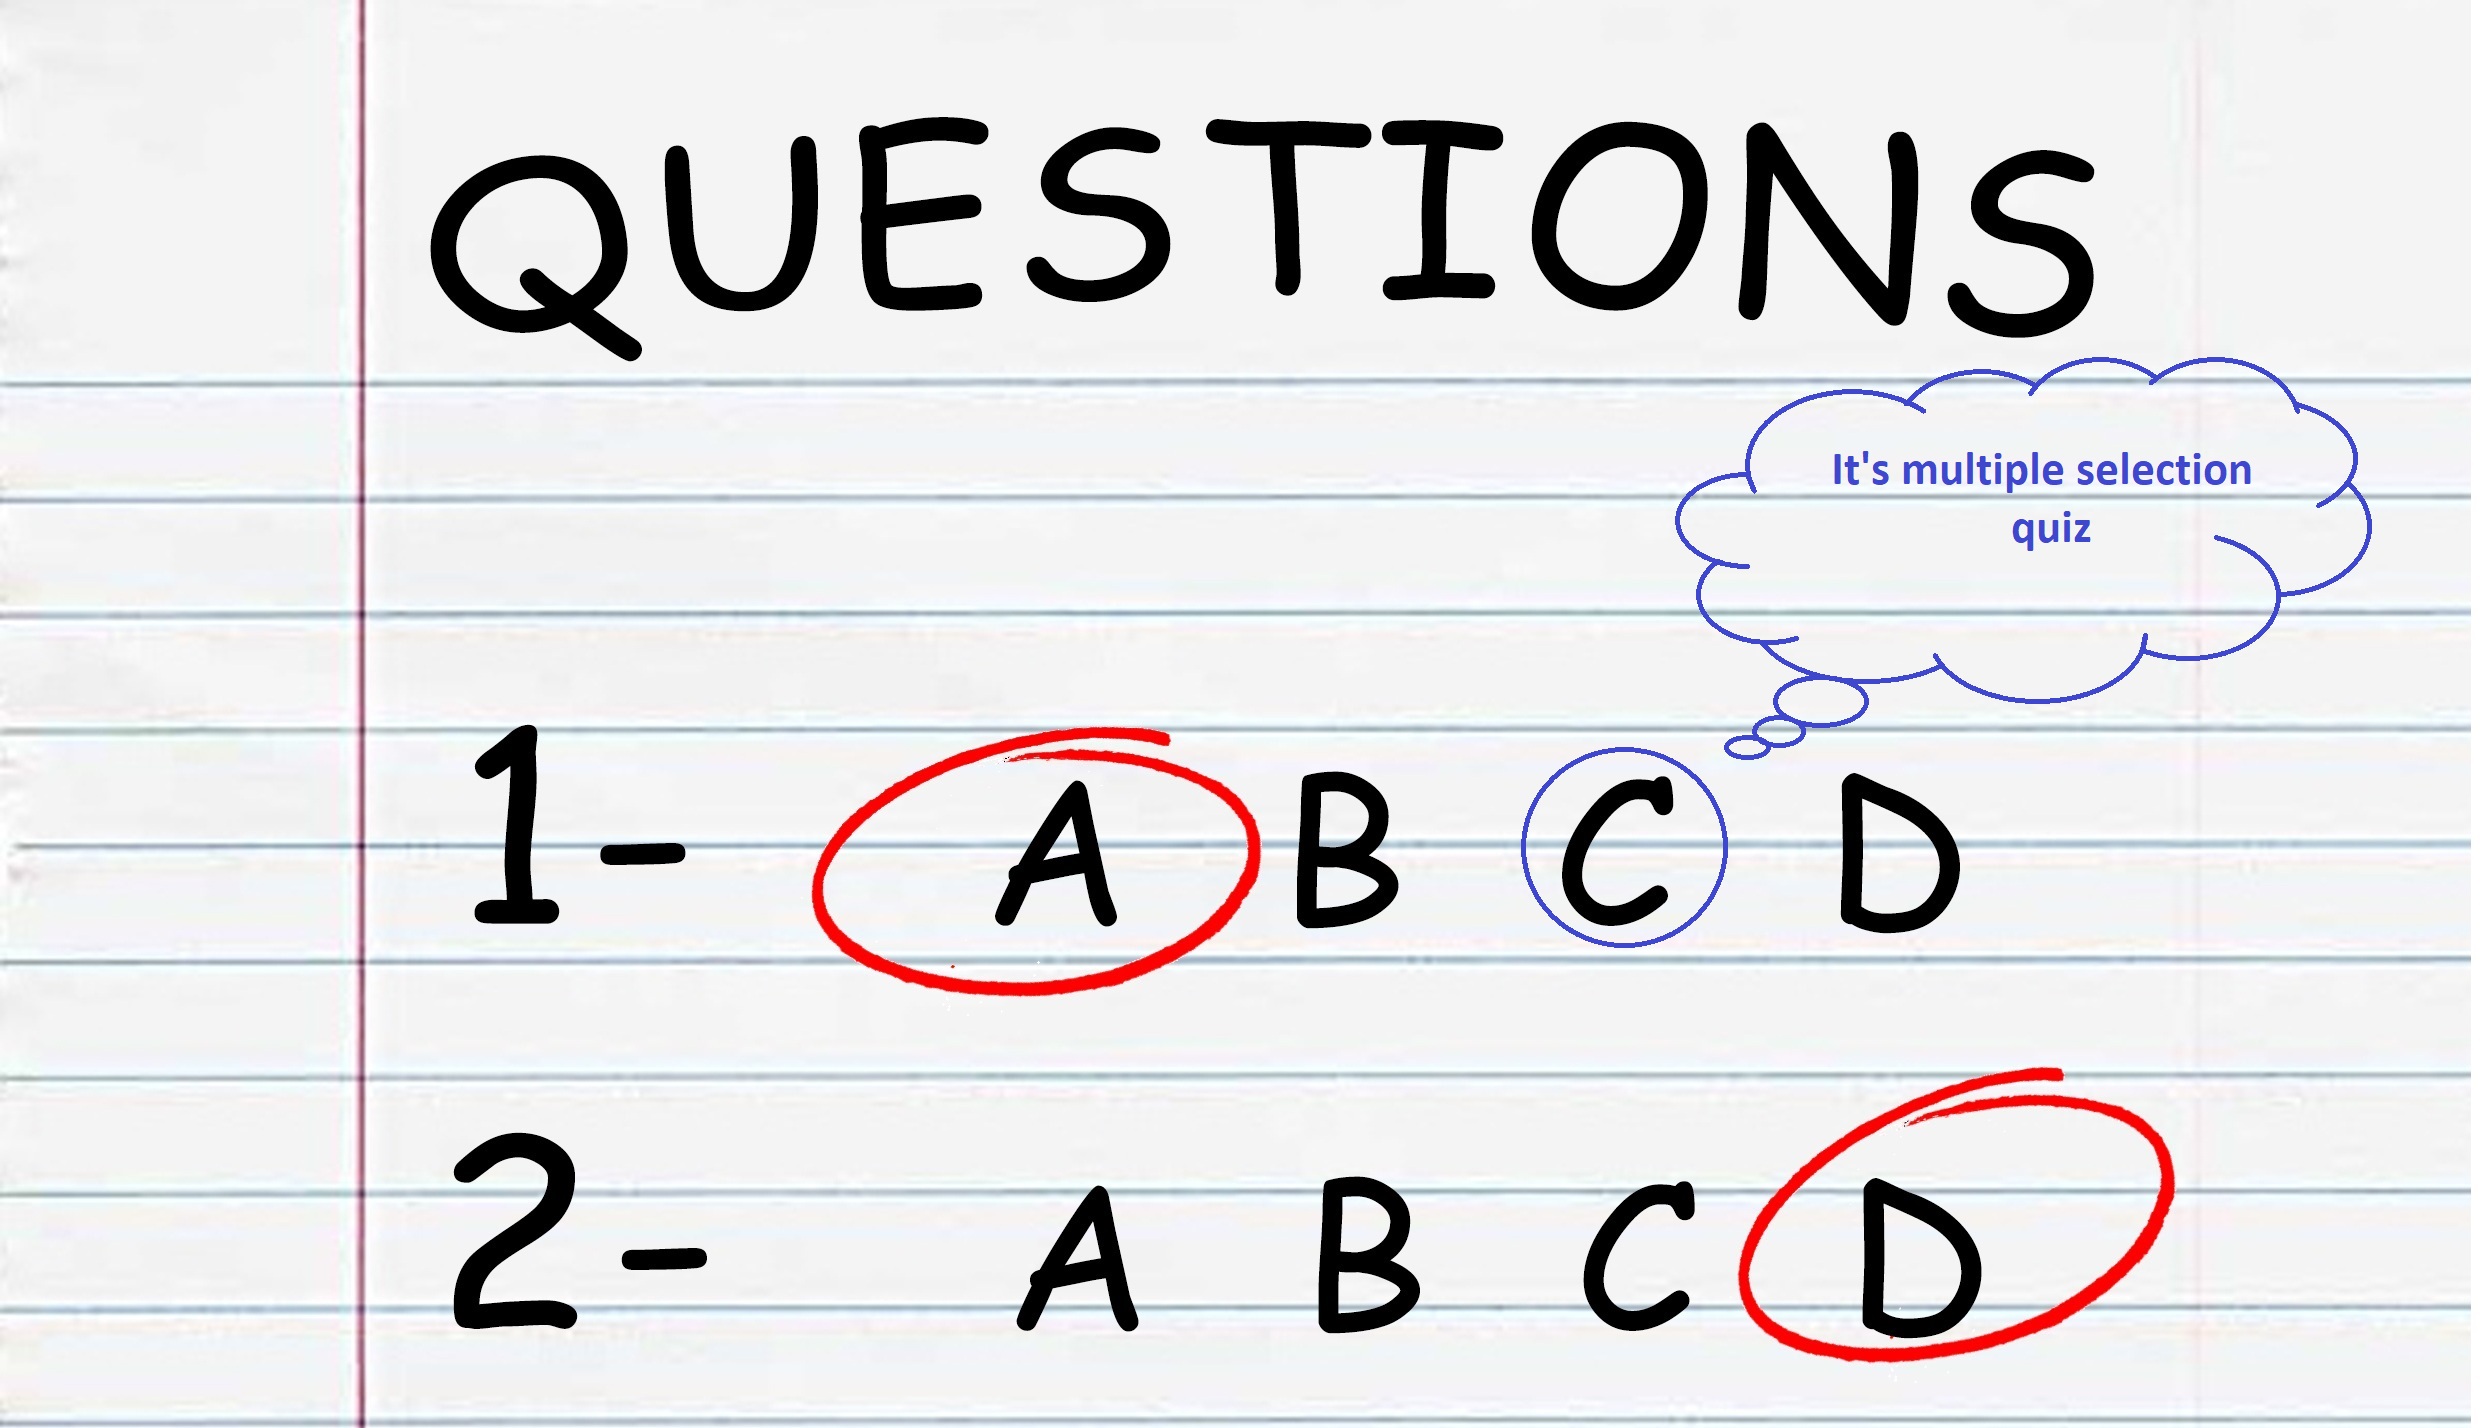 QUESTIONS
It's multiple selection
quiz
1- A B C D
2- A B C D